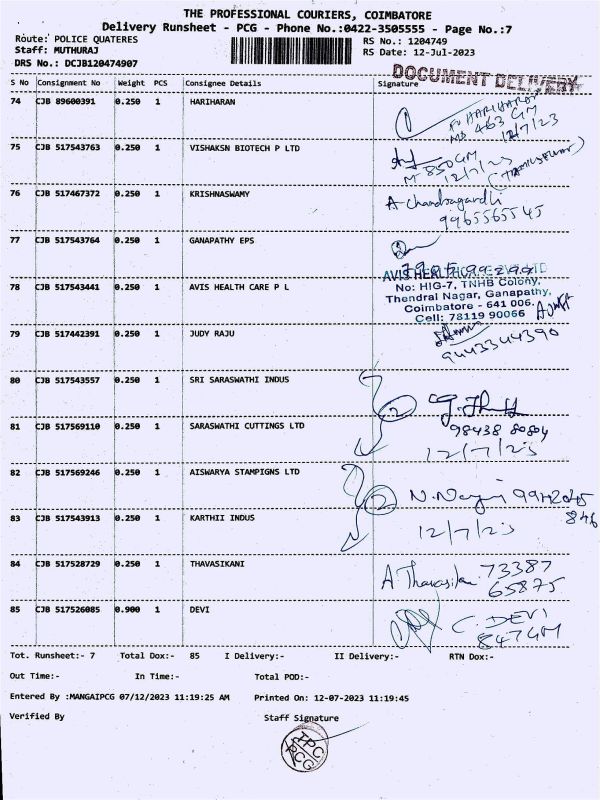 THE PROFESSIONAL COURIERS, COIMBATORE
Delivery Runsheet - PCG - Phone No.:0422-3505555 - Page No.:7
Route: POLICE QUATERES RS No.: 1204749
Staff: MUTHURAJ RS Date: 12-Jul-2023
DRS No.: DCJB120474907
DOCUMENT DELIVERY
S No Consignment No Weight PCS Consignee Details Signature
74 CJB 89600391 0.250 1 HARIHARAN
HARIHARAN
463 GM
12/7/23
75 CJB 517543763 0.250 1 VISHAKSN BIOTECH P LTD
850 GM
12/7/23
76 CJB 517467372 0.250 1 KRISHNASWAMY
A Chandragandhi
9965565545
77 CJB 517543764 0.250 1 GANAPATHY EPS
78 CJB 517543441 0.250 1 AVIS HEALTH CARE P L
AVIS HEALTHCARE PVT LTD
No: HIG-7, TNHB Colony,
Thendral Nagar, Ganapathy,
Coimbatore - 641 006.
Cell: 78119 90066
79 CJB 517442391 0.250 1 JUDY RAJU
9443344390
80 CJB 517543557 0.250 1 SRI SARASWATHI INDUS
2
81 CJB 517569110 0.250 1 SARASWATHI CUTTINGS LTD
98438 80804
12/7/23
82 CJB 517569246 0.250 1 AISWARYA STAMPIGNS LTD
2
83 CJB 517543913 0.250 1 KARTHII INDUS
12/7/23
84 CJB 517528729 0.250 1 THAVASIKANI
73387
65875
85 CJB 517526085 0.900 1 DEVI
C. DEVI
847 GM
Tot. Runsheet:- 7 Total Dox:- 85 I Delivery:- II Delivery:- RTN Dox:-
Out Time:- In Time:- Total POD:-
Entered By :MANGAIPCG 07/12/2023 11:19:25 AM Printed On: 12-07-2023 11:19:45
Verified By Staff Signature